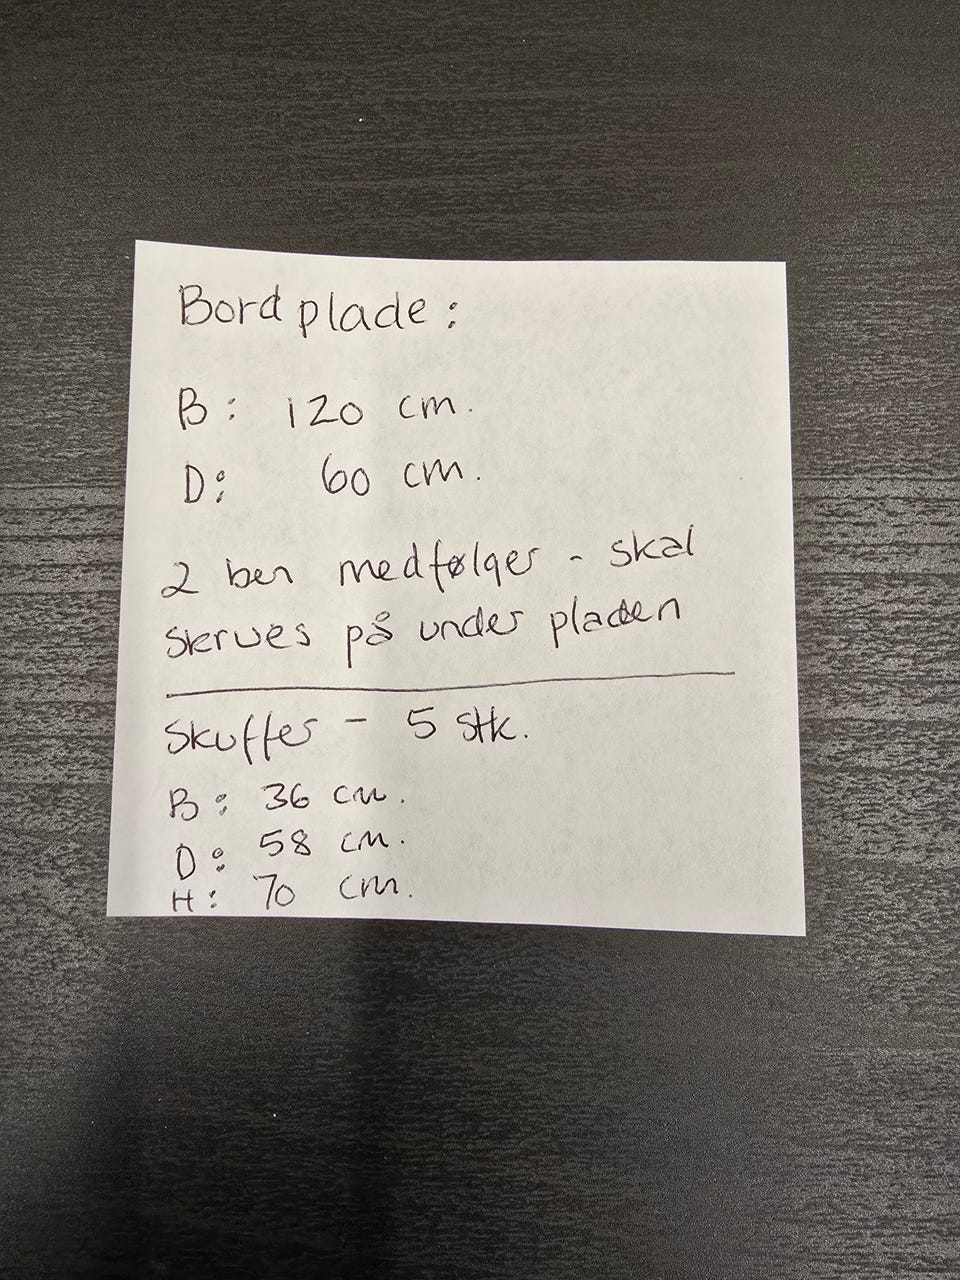 Bordplade:
B: 120 cm.
D: 60 cm.
2 ben medfølger - skal
skrues på under pladen
Skuffer - 5 stk.
B: 36 cm.
D: 58 cm.
H: 70 cm.